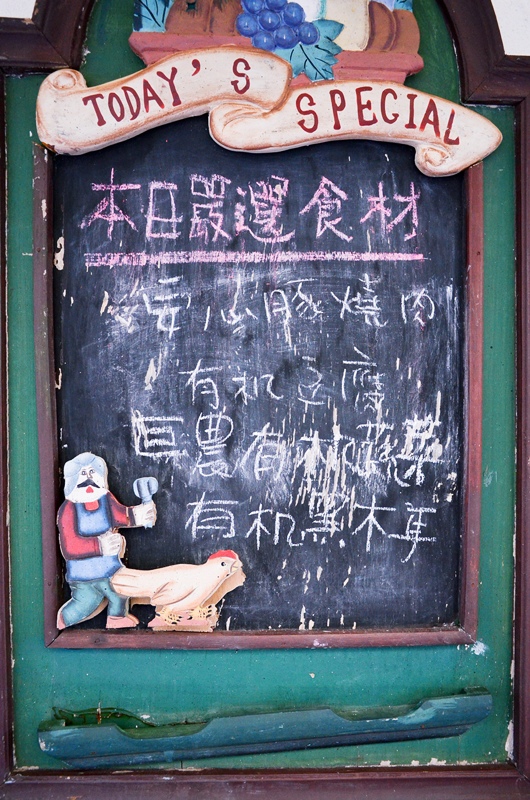 TODAY'S SPECIAL
本日嚴選食材
安心豚燒肉
有机豆腐
巨農有机蔬菜
有机黑木耳